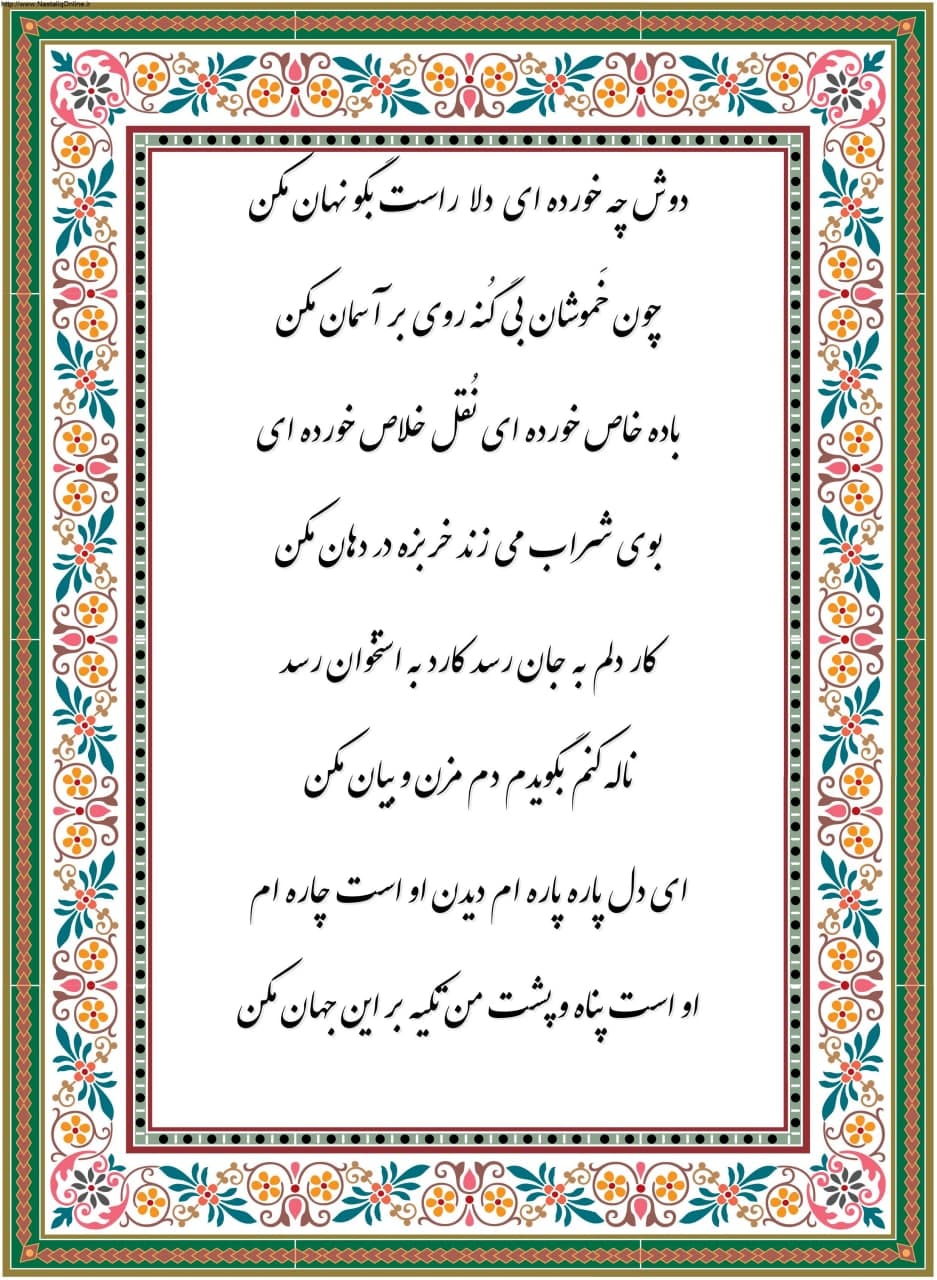 http://www.NastaliqOnline.ir
دوش چه خورده ای دلا راست بگو نهان مکن
چون خَموشان بی گُنه روی بر آسمان مکن
باده خاص خورده ای نُقل خلاص خورده ای
بوی شراب می زند خربزه در دهان مکن
کار دلم به جان رسد کارد به استخوان رسد
ناله کنم بگویدم دم مزن و بیان مکن
ای دل پاره پاره ام دیدن او است چاره ام
او است پناه و پشت من تکیه بر این جهان مکن